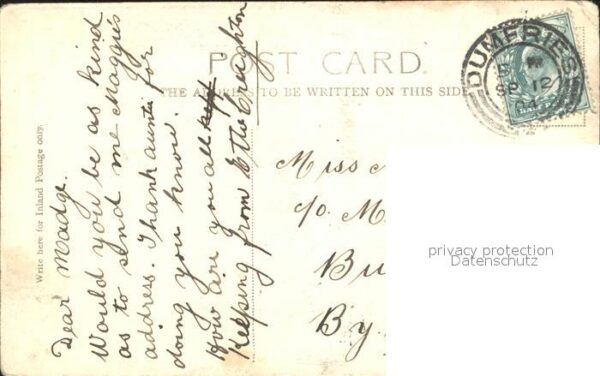 POST CARD.
THE ADDRESS TO BE WRITTEN ON THIS SIDE
Write here for Inland Postage only.
Dear Madge.
Would you be as kind
as to send me Maggie's
address. Thank auntie for
doing you know.
How are you all
Keeping from Creighton
Miss
c/o M
Bu
By
DUMFRIES
SP 12
04
privacy protection
Datenschutz